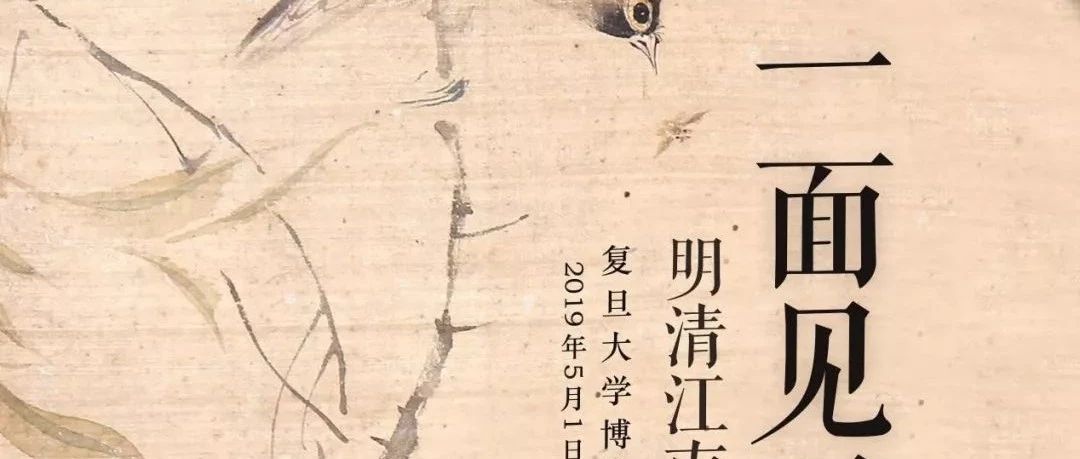 一面见
明清江
复旦大学博
2019年5月1日